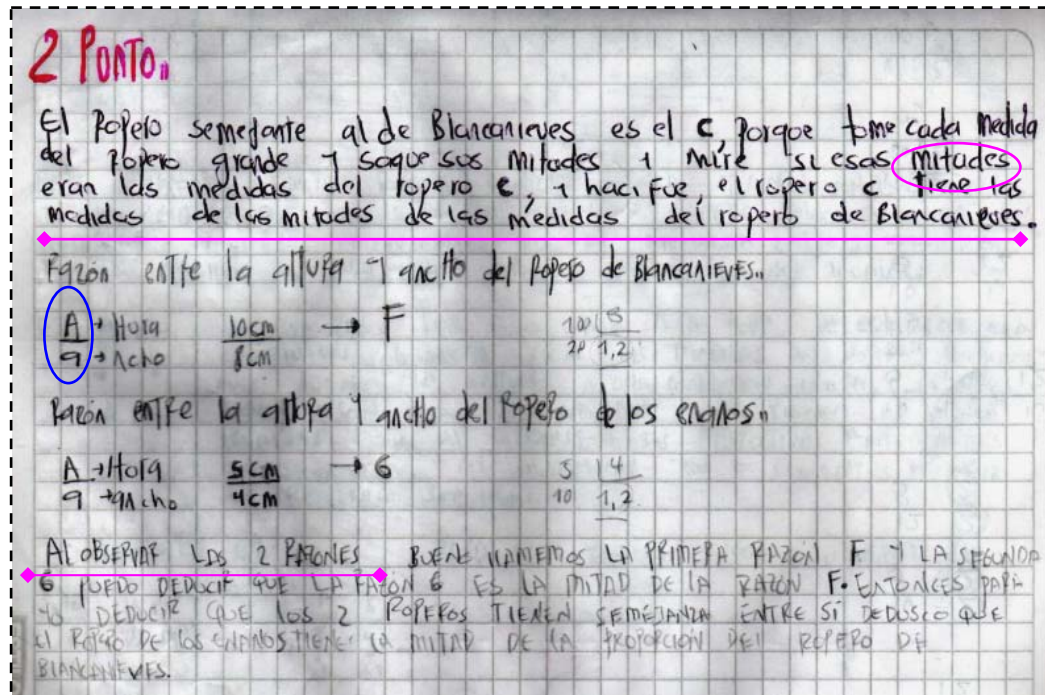 2 PUNTO"
El Ropero semejante al de Blancanieves es el c, porque tome cada medida
del ropero grande y saque sus mitades y mire si esas mitades
eran las medidas del ropero c, y haci fue, el ropero c tiene las
medidas de las mitades de las medidas del ropero de Blancanieves.
Razón entre la altura y ancho del Ropero de BlancaNIEVES"
A → ltura 10cm → F 100 8
a → Ncho 8cm 20 1,2
Razón entre la altura y ancho del Ropero de los enanos"
A → ltura 5cm → G 5 4
a → ancho 4cm 10 1,2
Al OBSERVAR LAS 2 RAZONES BUENO LLAMEMOS LA PRIMERA RAZON F Y LA SEGUNDA
G PUEDO DEDUCIR QUE LA RAZÓN G ES LA MITAD DE LA RAZON F. ENTONCES PARA
YO DEDUCIR QUE los 2 ROPEROS TIENEN SEMEJANZA ENTRE SÍ DEDUSCO QUE
El ROPERO DE LOS ENANOS TIENE LA MITAD DE LA PROPORCIÓN DEl ROPERO DE
BlANCANIEVES.